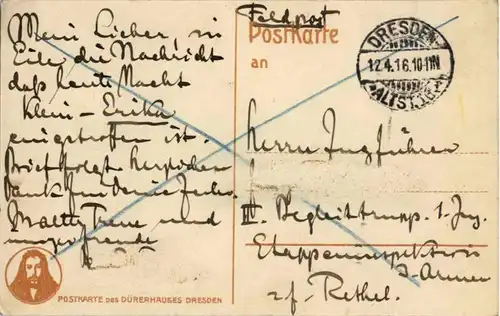 Feldpost
Mein Lieber, in
Eile die Nachricht
daß heute Nacht
Klein-Erika
eingetroffen ist.
Brief folgt. Herzlichen
Dank für deine Zeilen.
und
unsere Freude
Postkarte
an
DRESDEN
12.4.16.10-11N
ALTST.
Herrn Zugführer
III. Begleittrupp. 1.
Etappeninspektion
3. Armee
z. f. Rethel.
POSTKARTE DES DÜRERHAUSES DRESDEN